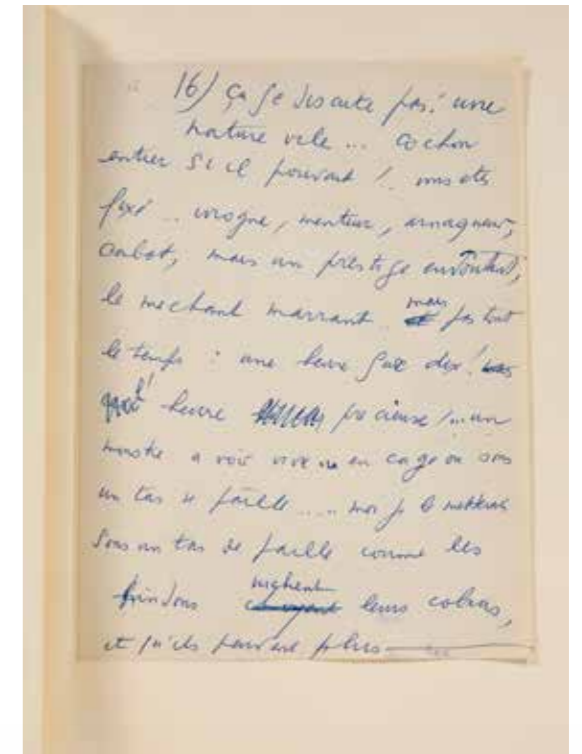 16) ça se discute pas! une
nature vile ... cochon
entier si il pouvait !. vous etes
fixé .. ivrogne, menteur, arnaqueur,
cabot, mais un prestige envoûtant,
le mechant marrant .. mais pas tout
le temps : une heure sur dix !
quel! heure precieuse !... un
monstre a voir vivre en cage ou sous
un tas de paille ..... moi je le mettrais
sous un tas de paille comme les
hindous leurs cobras,
et qu'ils plus